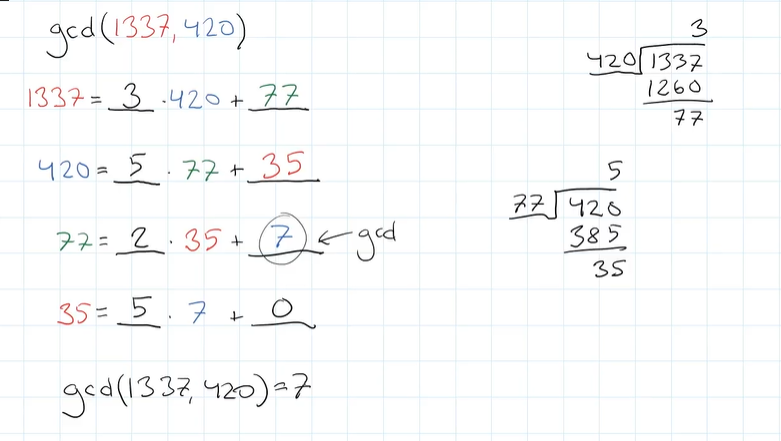 gcd(1337, 420)
1337 = 3 · 420 + 77
420 = 5 · 77 + 35
77 = 2 · 35 + 7 ← gcd
35 = 5 · 7 + 0
gcd(1337, 420) = 7
3
420 1337
1260
77
5
77 420
385
35